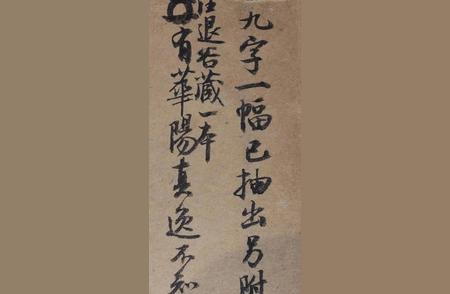 九字一幅已抽出另附
汪退谷藏一本
有華陽真逸不知